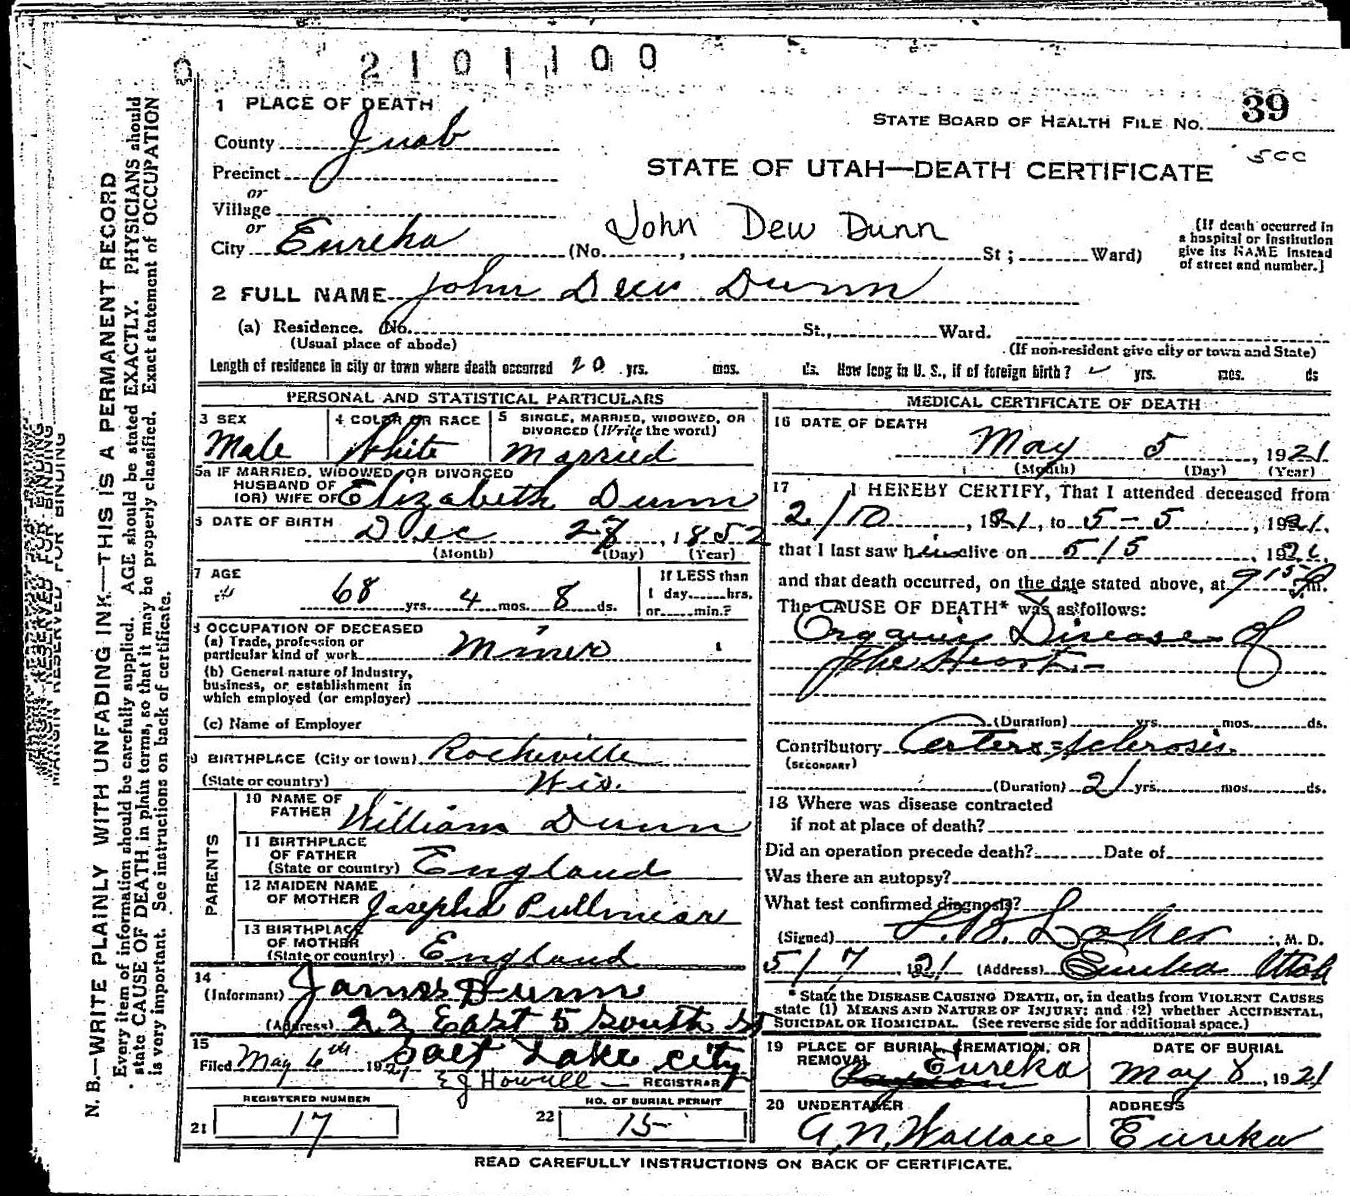 2101100
1 PLACE OF DEATH
County Juab
Precinct
or
Village
or
City Eureka (No. , St ; Ward)
John Dew Dunn
STATE BOARD OF HEALTH FILE NO. 39
500
STATE OF UTAH—DEATH CERTIFICATE
[If death occurred in
a hospital or institution
give its NAME instead
of street and number.]
2 FULL NAME John Dew Dunn
(a) Residence. No. St., Ward.
(Usual place of abode) (If non-resident give city or town and State)
Length of residence in city or town where death occurred 20 yrs. mos. ds. How long in U. S., if of foreign birth? yrs. mos. ds
PERSONAL AND STATISTICAL PARTICULARS
3 SEX
Male
4 COLOR OR RACE
White
5 SINGLE, MARRIED, WIDOWED, OR
DIVORCED (Write the word)
Married
5a IF MARRIED, WIDOWED OR DIVORCED
HUSBAND OF
(OR) WIFE OF Elizabeth Dunn
6 DATE OF BIRTH
Dec 27, 1852
(Month) (Day) (Year)
7 AGE
68 yrs. 4 mos. 8 ds.
If LESS than
1 day hrs.
or min.?
8 OCCUPATION OF DECEASED
(a) Trade, profession or
particular kind of work Miner
(b) General nature of industry,
business, or establishment in
which employed (or employer)
(c) Name of Employer
9 BIRTHPLACE (City or town) Rockville
(State or country) Wis.
PARENTS
10 NAME OF
FATHER William Dunn
11 BIRTHPLACE
OF FATHER
(State or country) England
12 MAIDEN NAME
OF MOTHER Josepha
13 BIRTHPLACE
OF MOTHER
(State or country) England
14
(Informant) James Dunn
(Address) 22 East 5 South St
Salt Lake City
15
Filed May 6th 1921 E J Howell REGISTRAR
REGISTERED NUMBER
21 17
NO. OF BURIAL PERMIT
22 15
MEDICAL CERTIFICATE OF DEATH
16 DATE OF DEATH
May 5, 1921
(Month) (Day) (Year)
17 I HEREBY CERTIFY, That I attended deceased from
2/10, 1921, to 5-5, 1921.
that I last saw him alive on 5/5 1921,
and that death occurred, on the date stated above, at 915 P.m.
The CAUSE OF DEATH* was as follows:
Organic Disease of
the Heart
(Duration) yrs. mos. ds.
Contributory Arterio-Sclerosis
(SECONDARY)
(Duration) 2 yrs. mos. ds.
18 Where was disease contracted
if not at place of death?
Did an operation precede death? Date of
Was there an autopsy?
What test confirmed diagnosis?
(Signed) M. D.
5/7, 1921 (Address) Eureka Utah
* State the DISEASE CAUSING DEATH, or, in deaths from VIOLENT CAUSES
state (1) MEANS AND NATURE OF INJURY; and (2) whether ACCIDENTAL,
SUICIDAL OR HOMICIDAL. (See reverse side for additional space.)
19 PLACE OF BURIAL, CREMATION, OR
REMOVAL Eureka
DATE OF BURIAL
May 8, 1921
20 UNDERTAKER
A. N. Wallace
ADDRESS
Eureka
READ CAREFULLY INSTRUCTIONS ON BACK OF CERTIFICATE.
MARGIN RESERVED FOR BINDING
N. B.—WRITE PLAINLY WITH UNFADING INK—THIS IS A PERMANENT RECORD
Every item of information should be carefully supplied. AGE should be stated EXACTLY. PHYSICIANS should
state CAUSE OF DEATH in plain terms, so that it may be properly classified. Exact statement of OCCUPATION
is very important. See instructions on back of certificate.